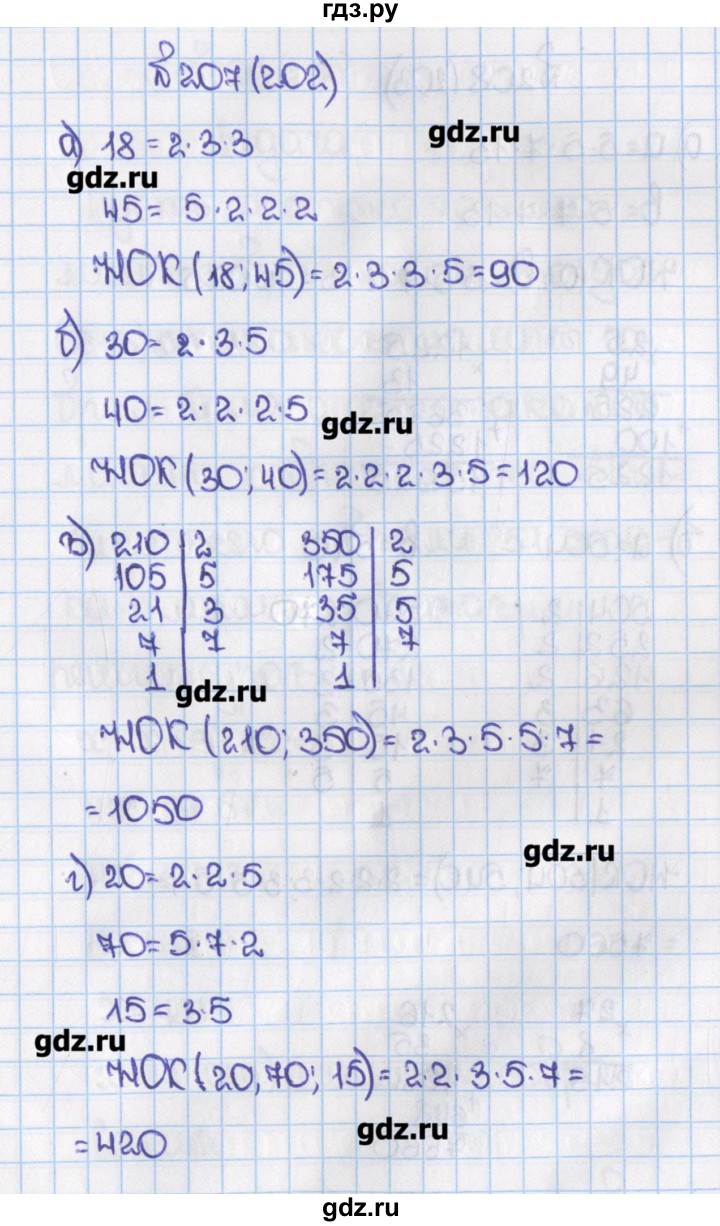 гдз.ру
№ 207 (202)
а) 18 = 2·3·3
gdz.ru
gdz.ru
45 = 5·2·2·2
НОК (18; 45) = 2·3·3·5 = 90
б) 30 = 2·3·5
40 = 2·2·2·5
gdz.ru
НОК (30; 40) = 2·2·2·3·5 = 120
в) 210 | 2 350 | 2
105 | 5 175 | 5
21 | 3 35 | 5
7 | 7 7 | 7
1 | 1 |
gdz.ru
НОК (210; 350) = 2·3·5·5·7 =
= 1050
gdz.ru
г) 20 = 2·2·5
70 = 5·7·2
15 = 3·5
gdz.ru
НОК (20, 70; 15) = 2·2·3·5·7 =
= 420
gdz.ru
gdz.ru